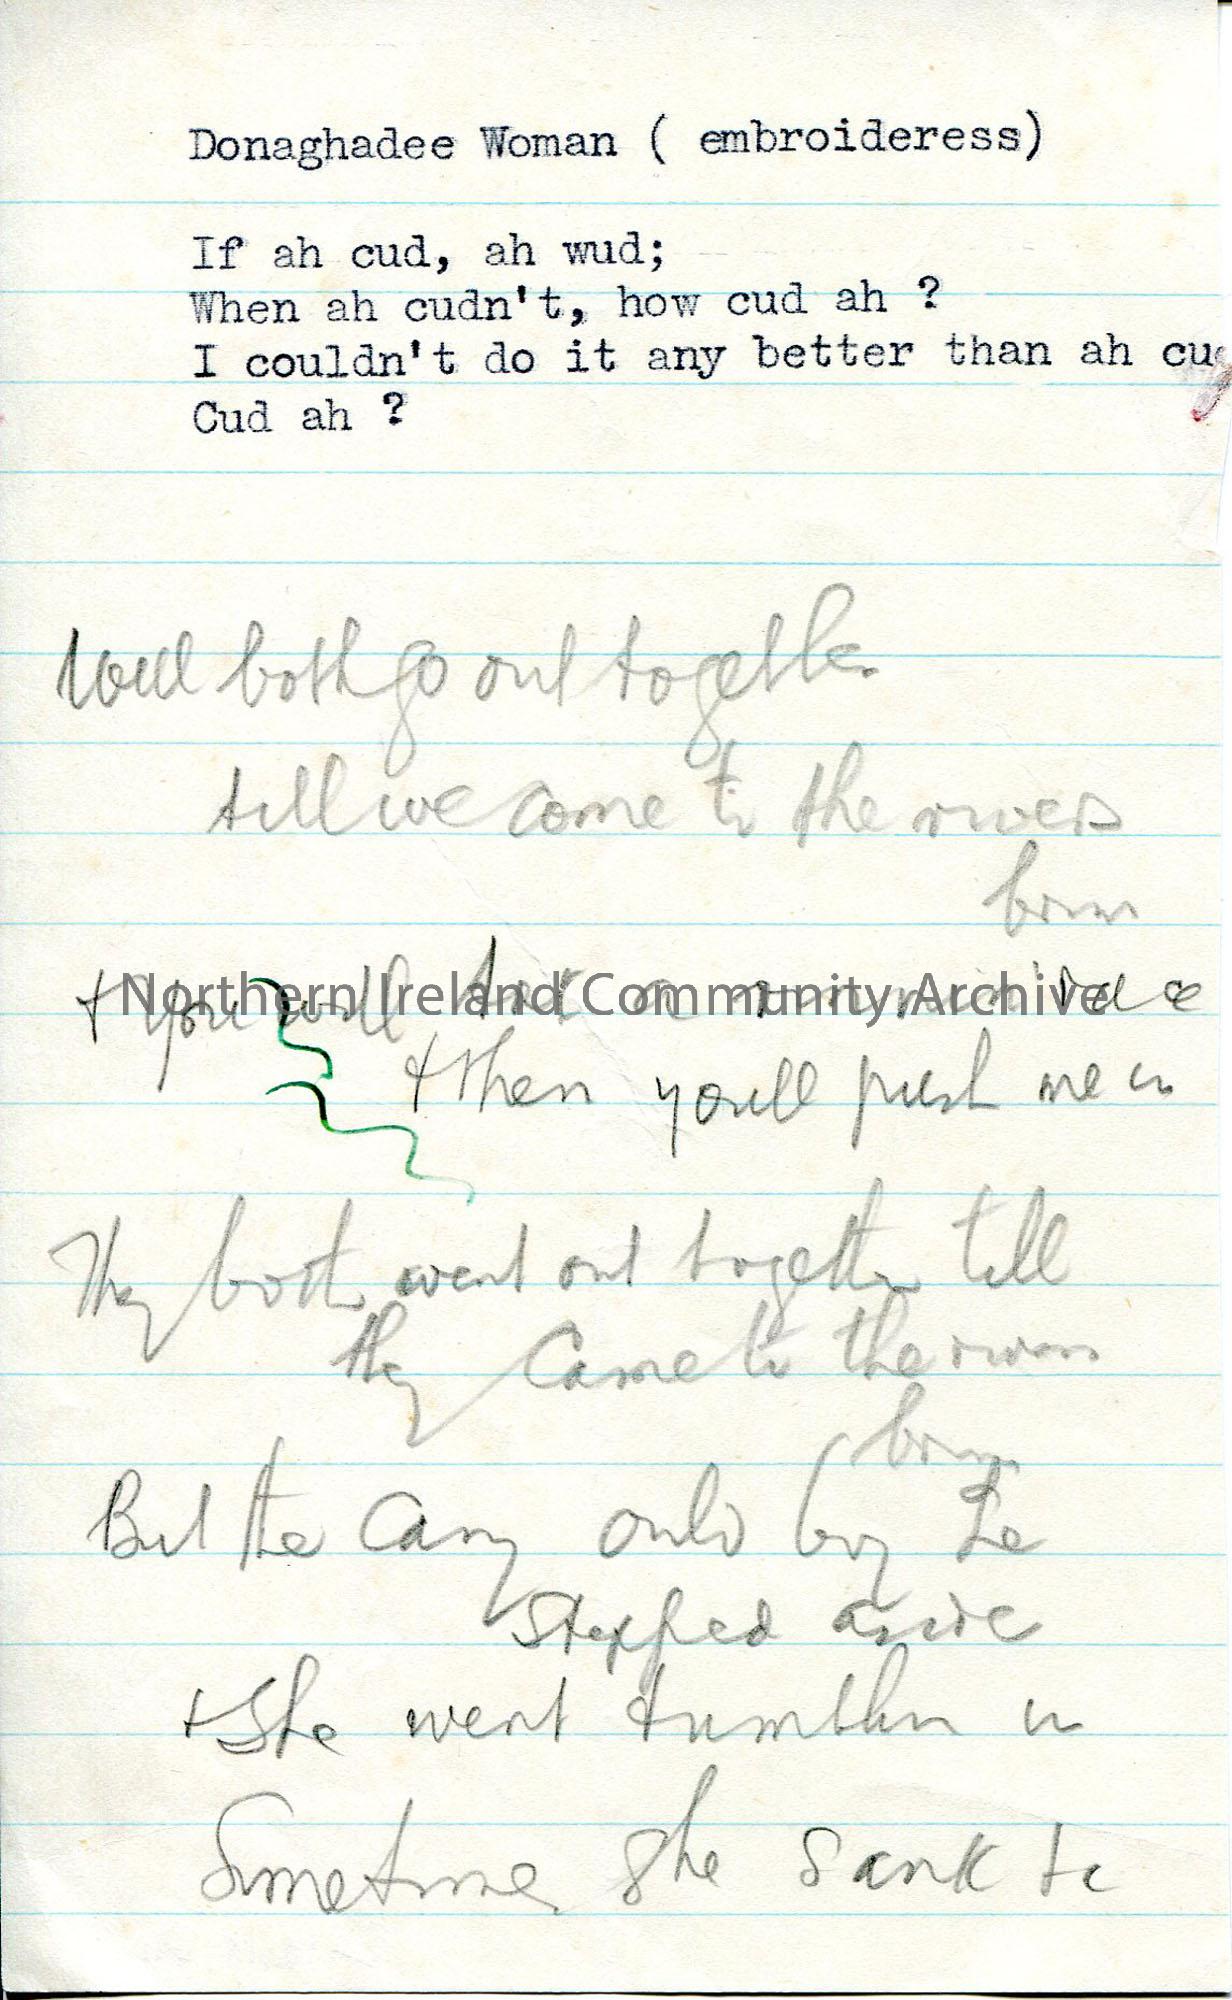 Donaghadee Woman ( embroideress)
If ah cud, ah wud;
When ah cudn't, how cud ah ?
I couldn't do it any better than ah cud
Cud ah ?
Well both go out together
till we come to the rivers
brim
+ you will take a runnin race
+ then youll push me in
They both went out together till
they came to the rivers
brim
But the cany ould boy he
stepped aside
+ she went tumblin in
Sometime she sank to
Northern Ireland Community Archive